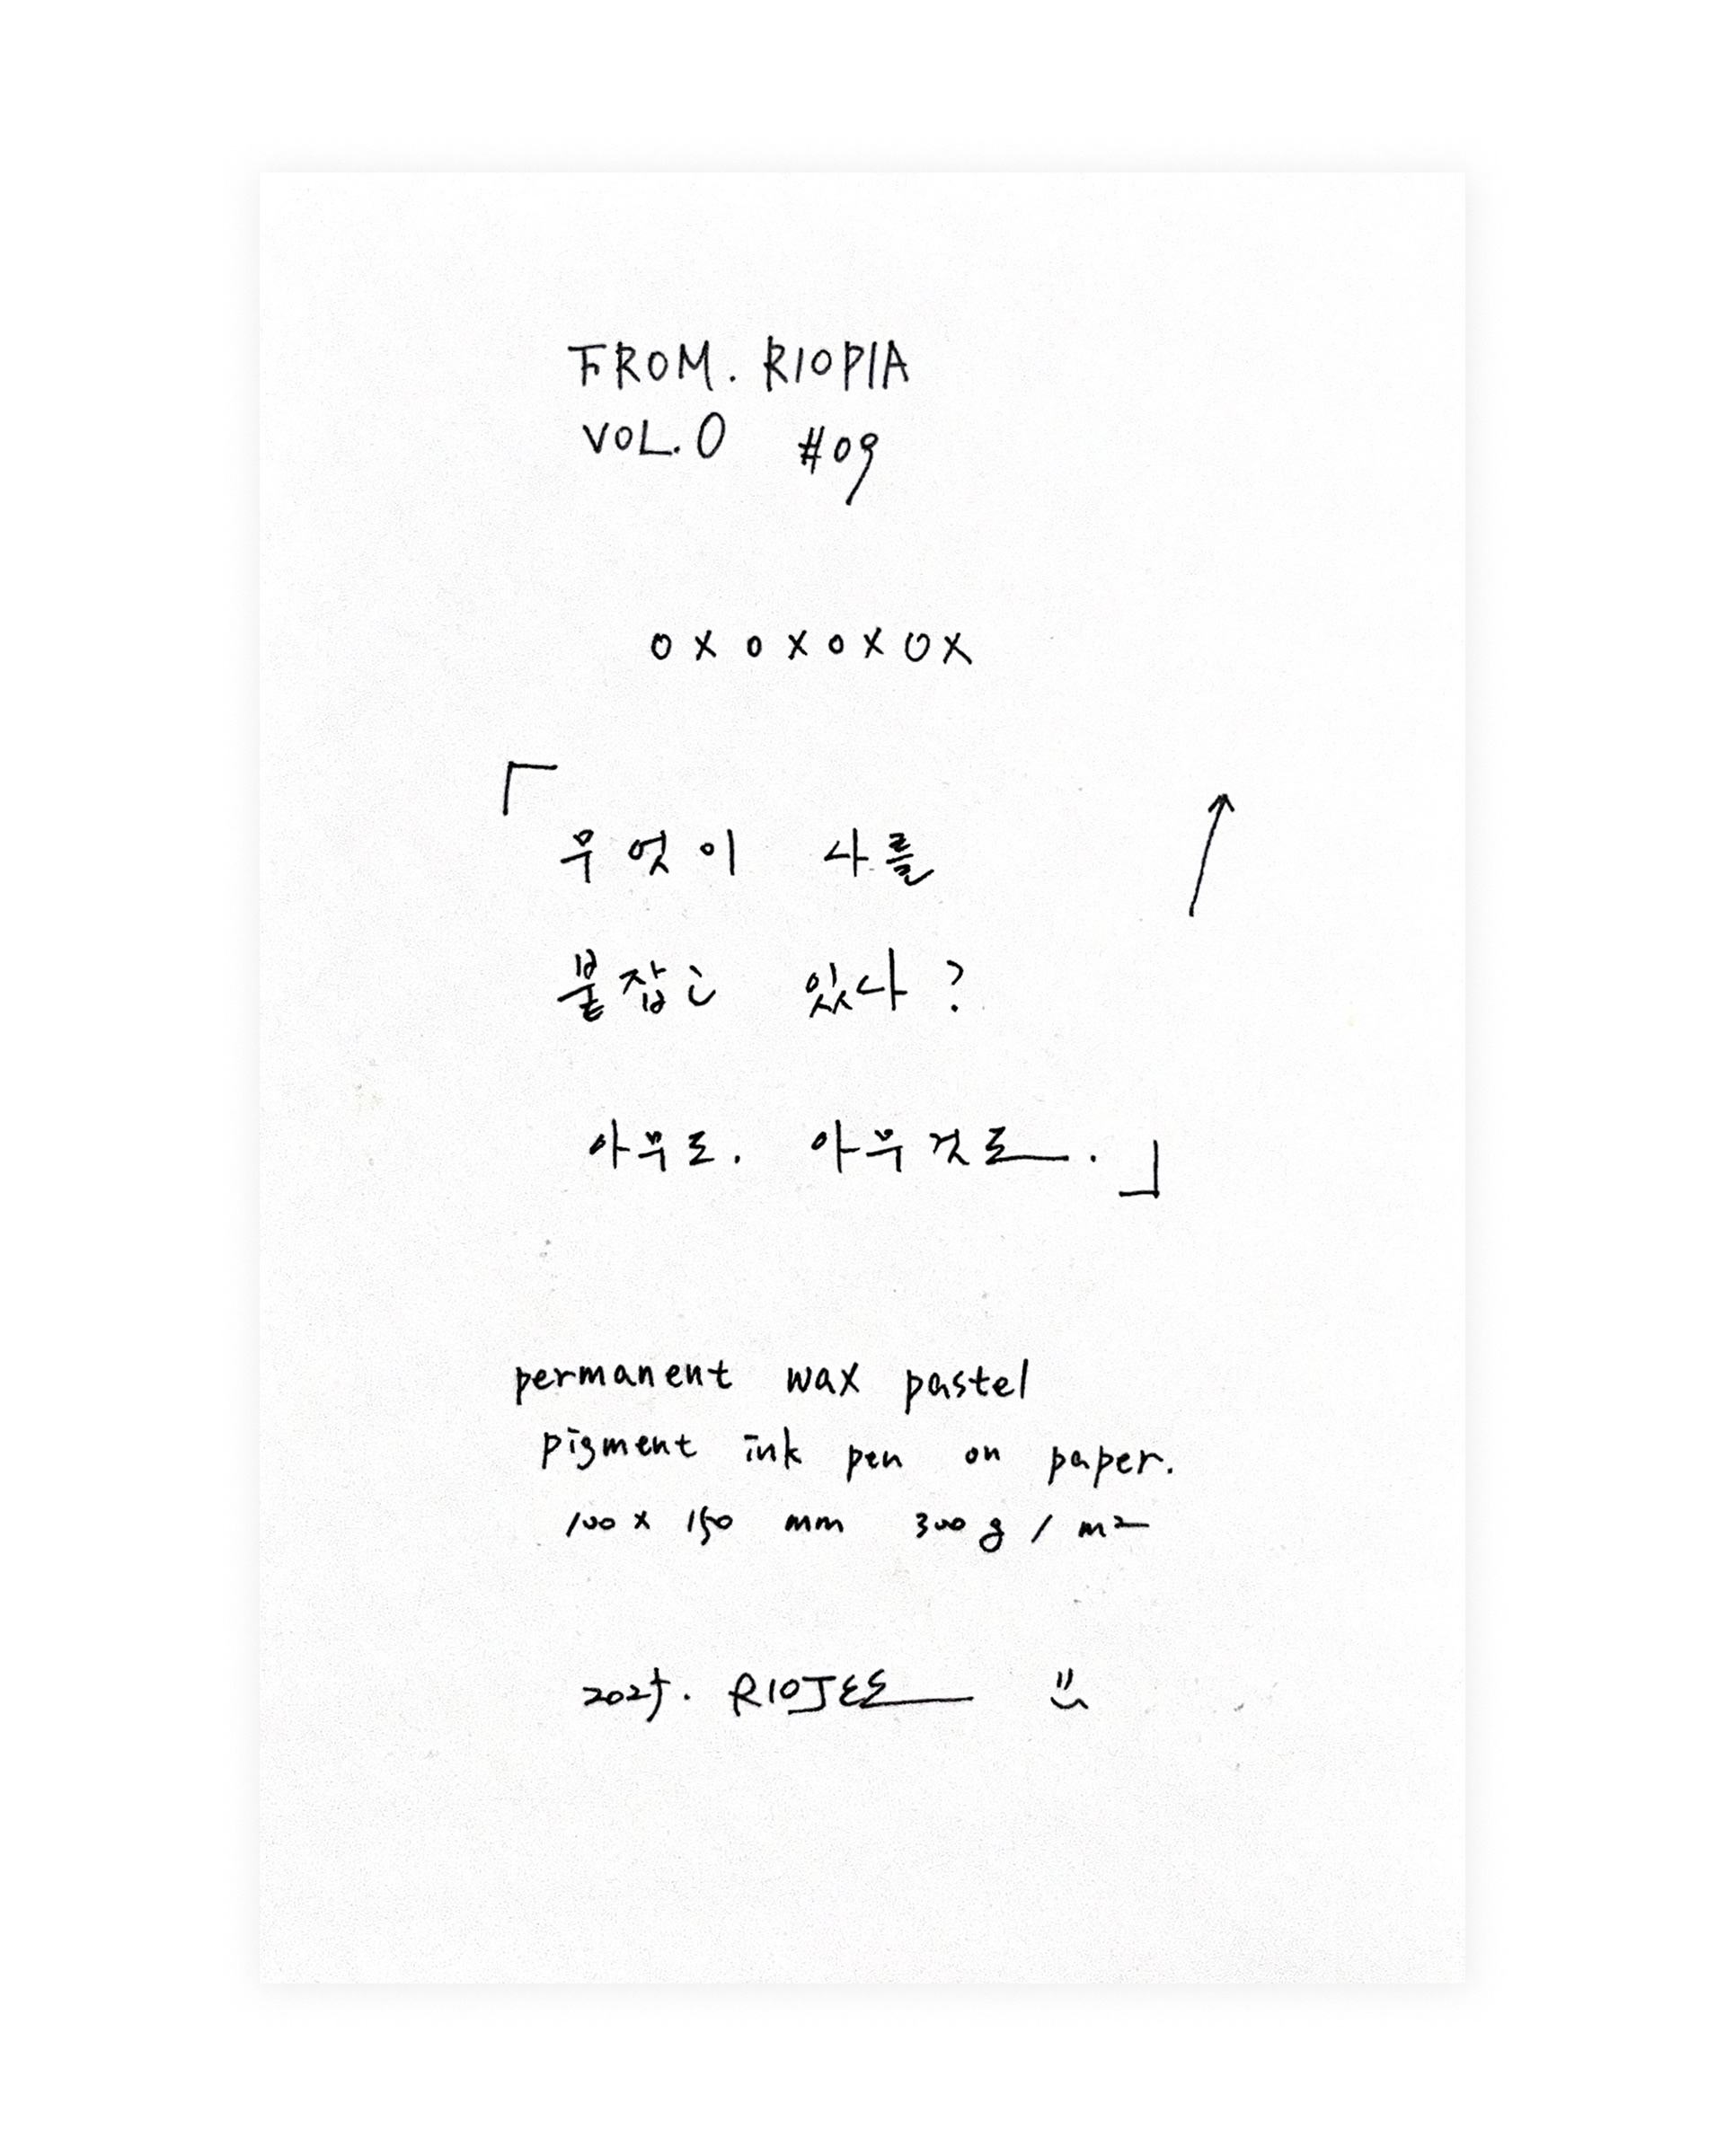 FROM. RIOPIA
VOL.0 #09
o x o x o x o x
「무엇이 나를
붙잡고 있나?
아무도. 아무것도.」
permanent wax pastel
pigment ink pen on paper.
100 x 150 mm 300 g / m²
2025. RIOJEE